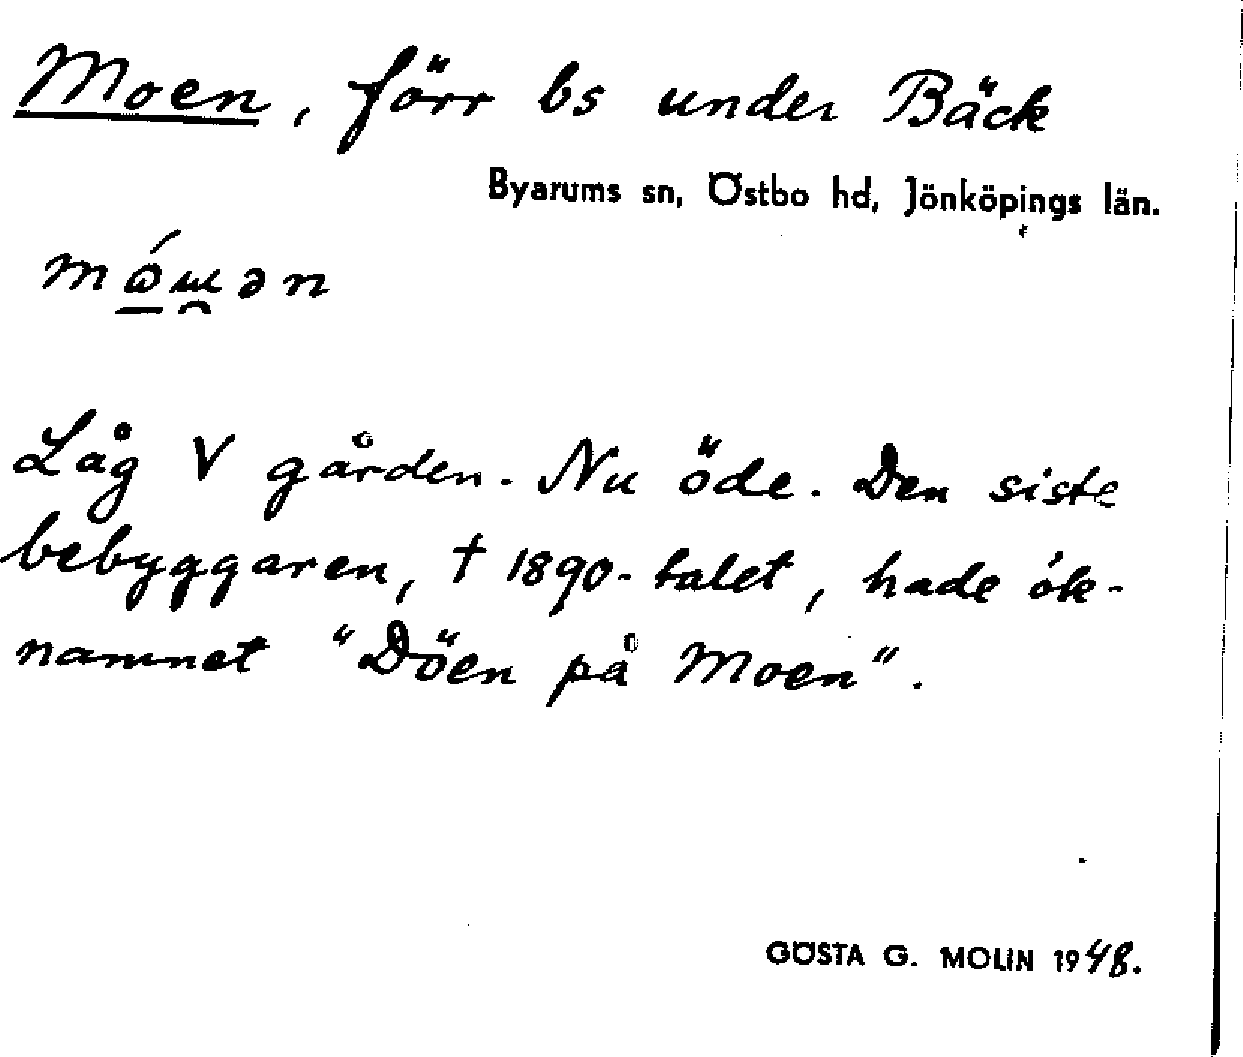 Moen, förr bs under Bäck
Byarums sn, Östbo hd, Jönköpings län.
Låg V gården. Nu öde. Den siste
bebyggaren, † 1890-talet, hade ök-
namnet "Döen på Moen".
GÖSTA G. MOLIN 1948.